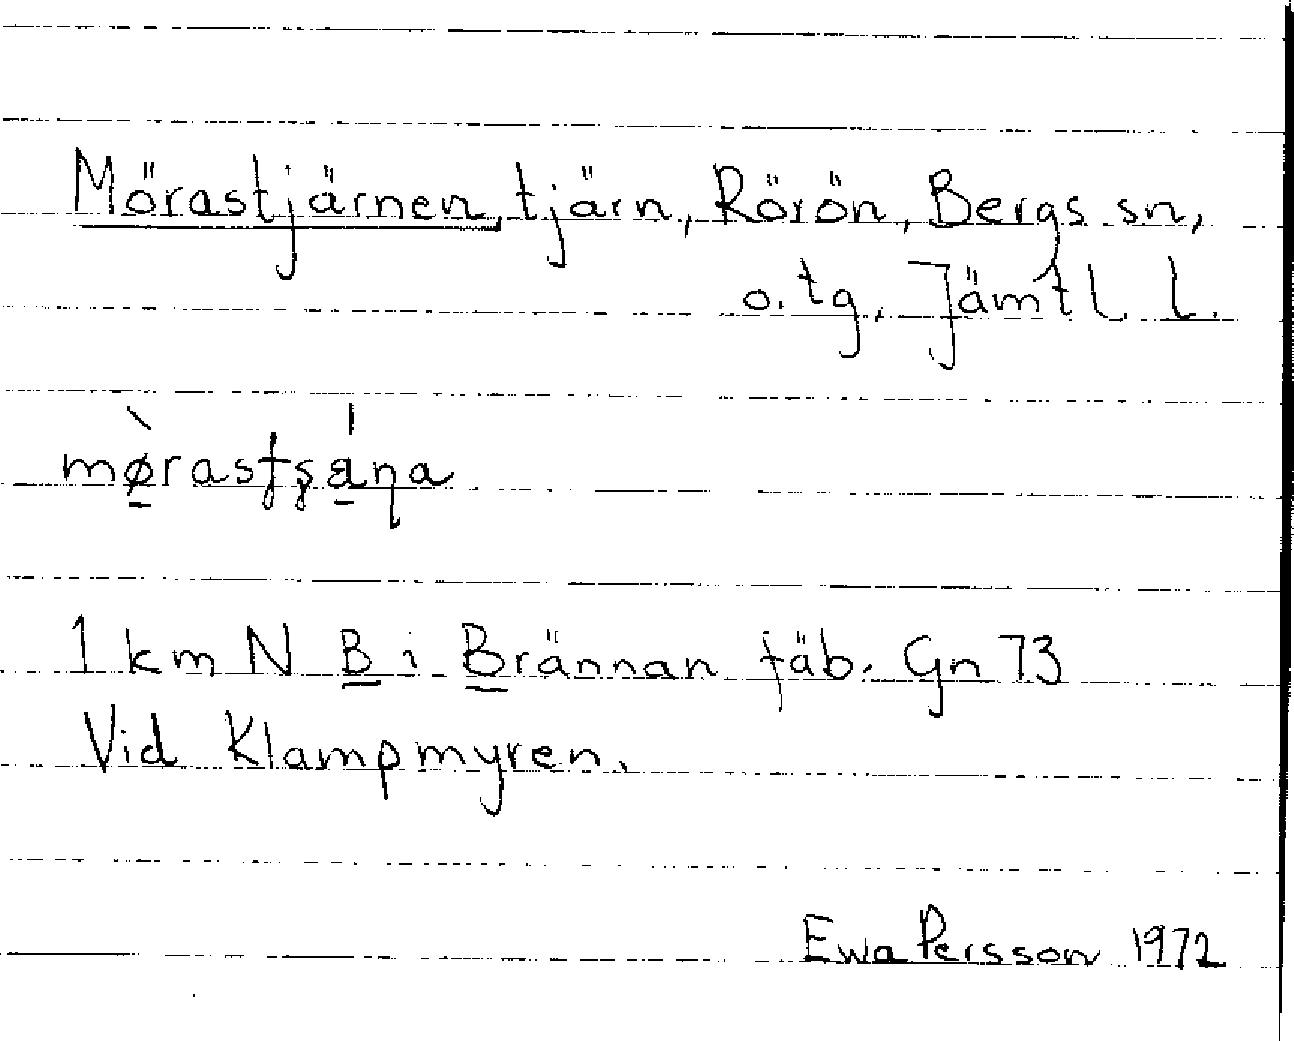 Mörastjärnen, tjärn, Rörön, Bergs sn,
o. tg, Jämtl. l.
mø̠̀rastʂá̠ɳa
1 km N B i Brännan fäb. Gn 73
Vid Klampmyren.
Ewa Persson 1972